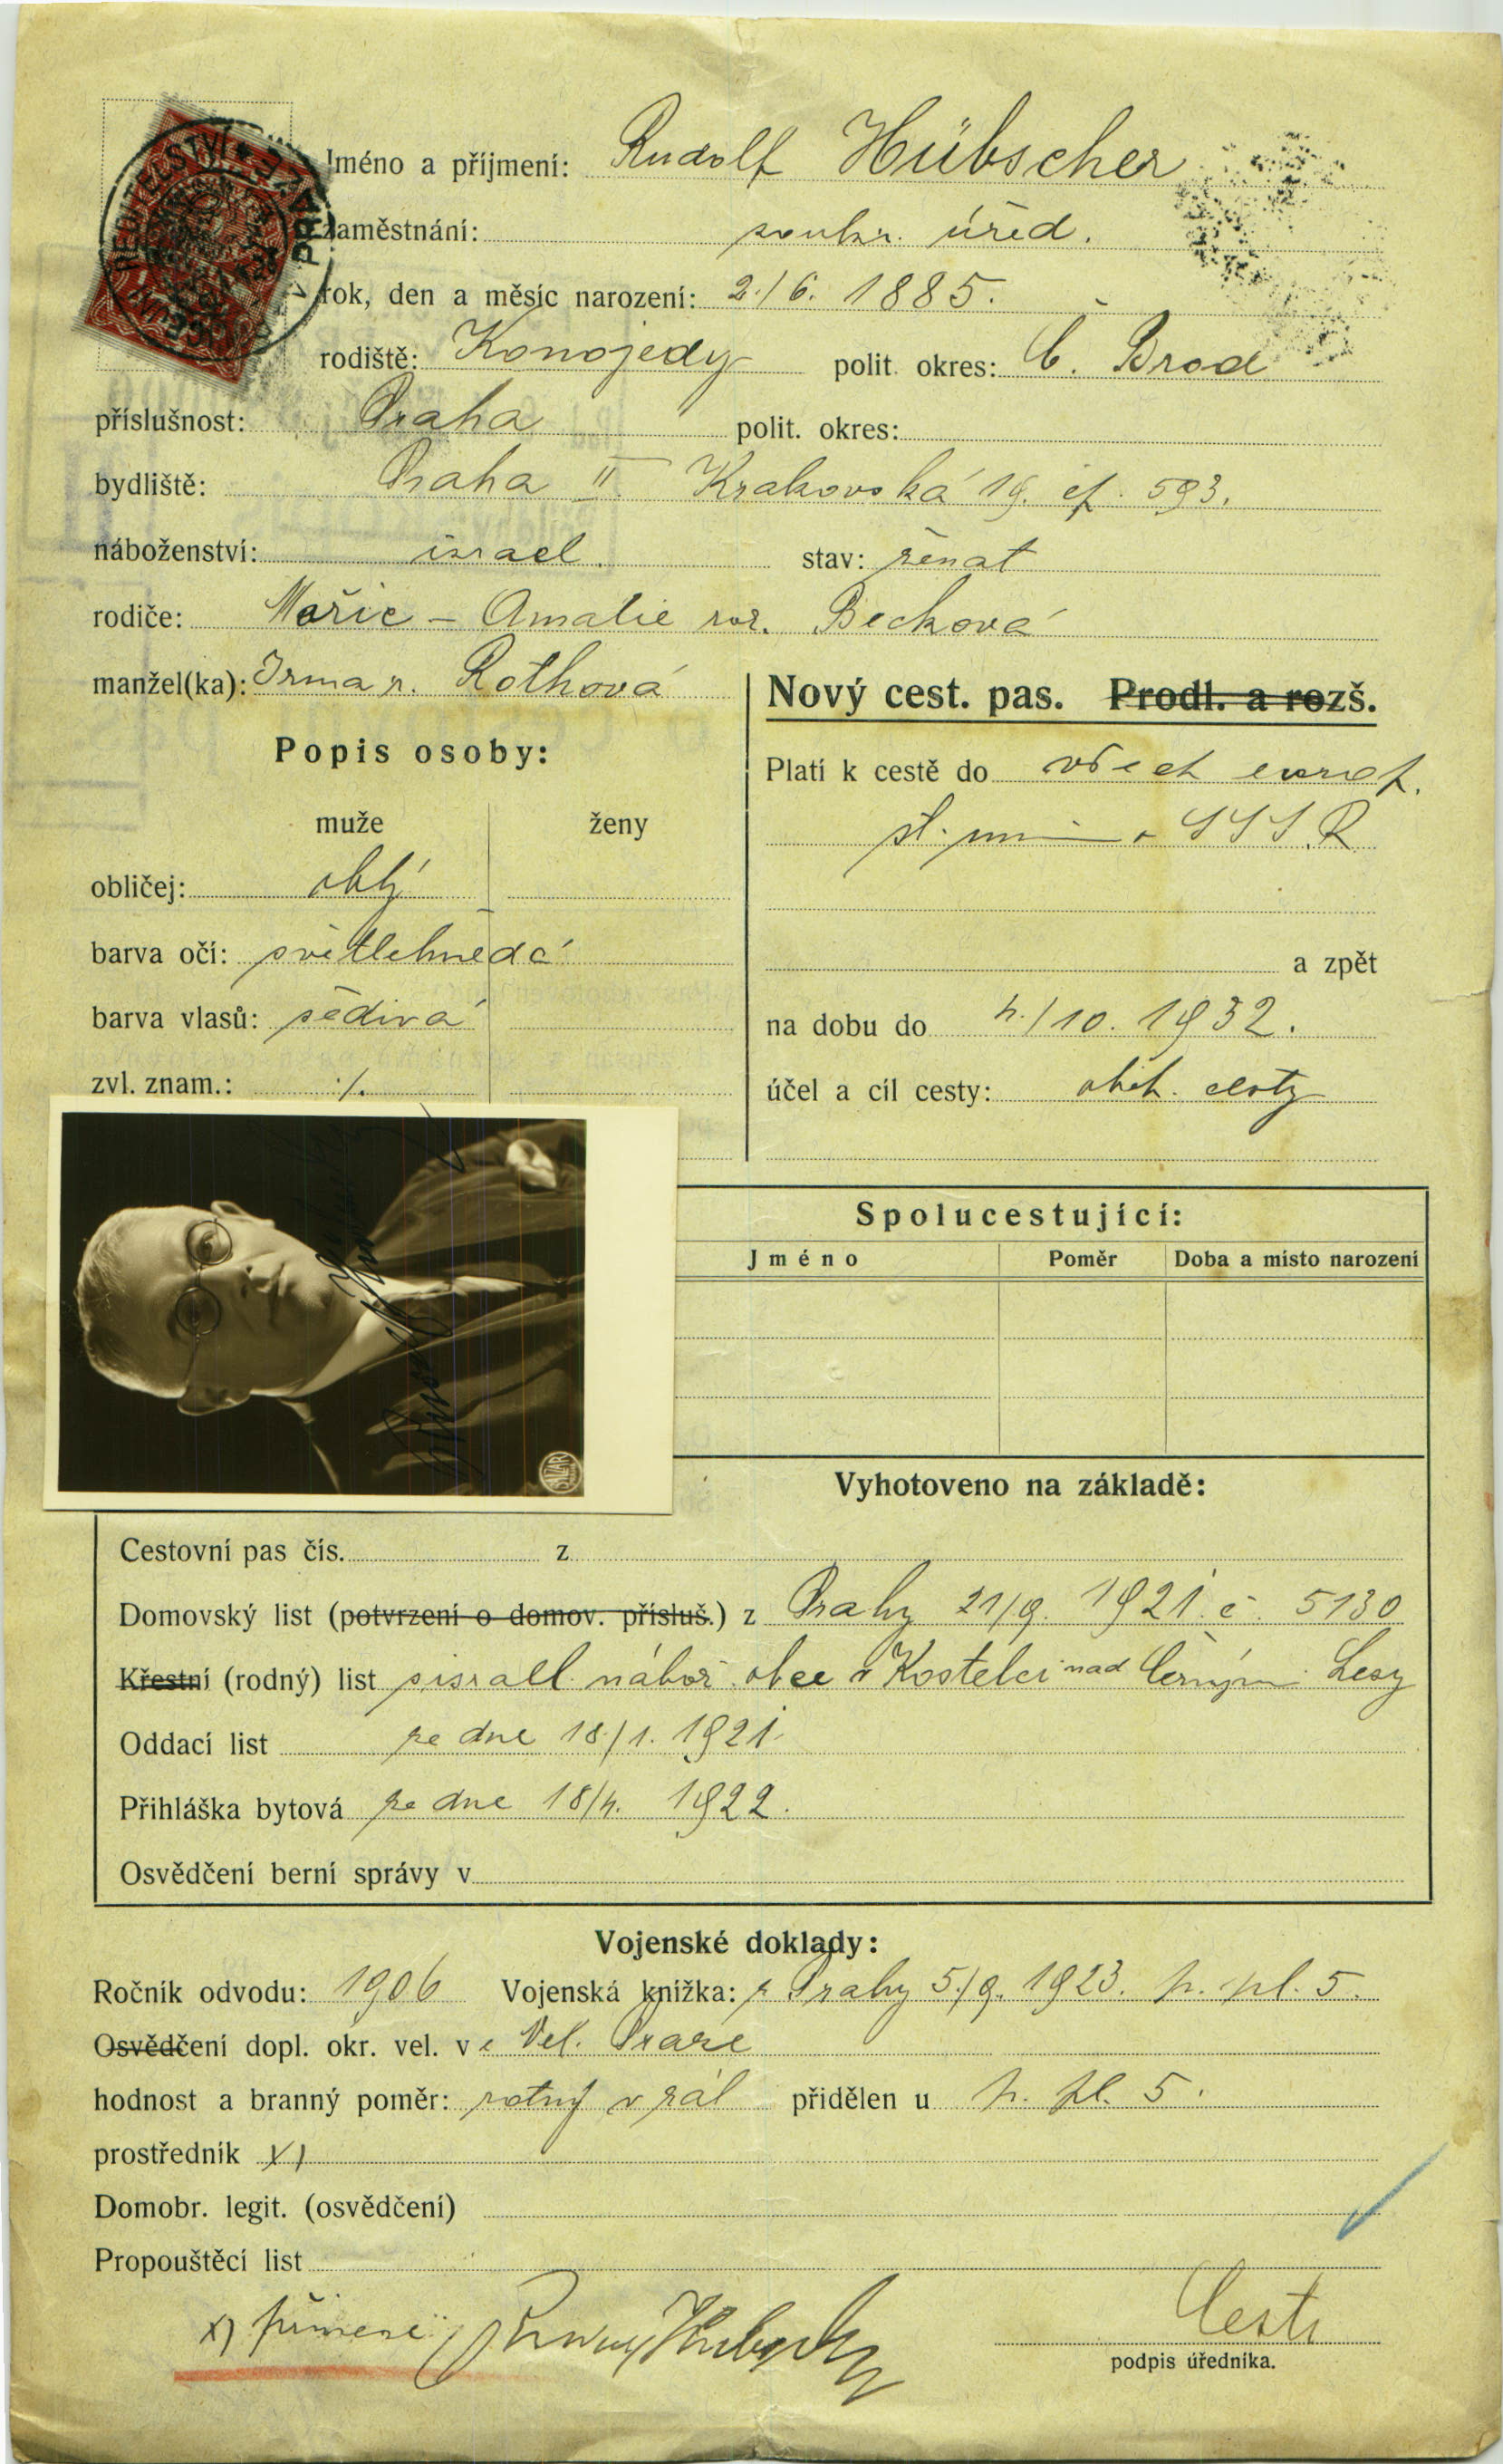 Jméno a příjmení: Rudolf Hübscher
zaměstnání: soukr. úřed.
rok, den a měsíc narození: 2./6. 1885.
rodiště: Konojedy polit. okres: Č. Brod
příslušnost: Praha polit. okres:
bydliště: Praha II. Krakovská 19. čp. 593.
náboženství: israel. stav: ženat
rodiče: Mořic – Amalie roz. Becková
manžel(ka): Irma r. Rothová
Nový cest. pas. Prodl. a rozš.
Popis osoby:
Platí k cestě do všech evrop.
muže ženy
st. mimo SSSR
obličej: oblý
barva očí: světlehnědá
a zpět
barva vlasů: šedivá
na dobu do 4./10. 1932.
zvl. znam.: ./.
účel a cíl cesty: obch. cesty
Spolucestující:
Jméno Poměr Doba a místo narození
Vyhotoveno na základě:
Cestovní pas čís. z
Domovský list (potvrzení o domov. přísluš.) z Prahy 21/9. 1921. č. 5130
Křestní (rodný) list israel. nábož. obce v Kostelci nad Černými Lesy
Oddací list ze dne 18./1. 1921.
Přihláška bytová ze dne 18/4. 1922.
Osvědčení berní správy v
Vojenské doklady:
Ročník odvodu: 1906 Vojenská knížka: z Prahy 5./9. 1923. p. pl. 5.
Osvědčení dopl. okr. vel. v Vel. Praze
hodnost a branný poměr: rotný v zál přidělen u p. pl. 5.
prostředník x)
Domobr. legit. (osvědčení)
Propouštěcí list
x)
podpis úředníka.